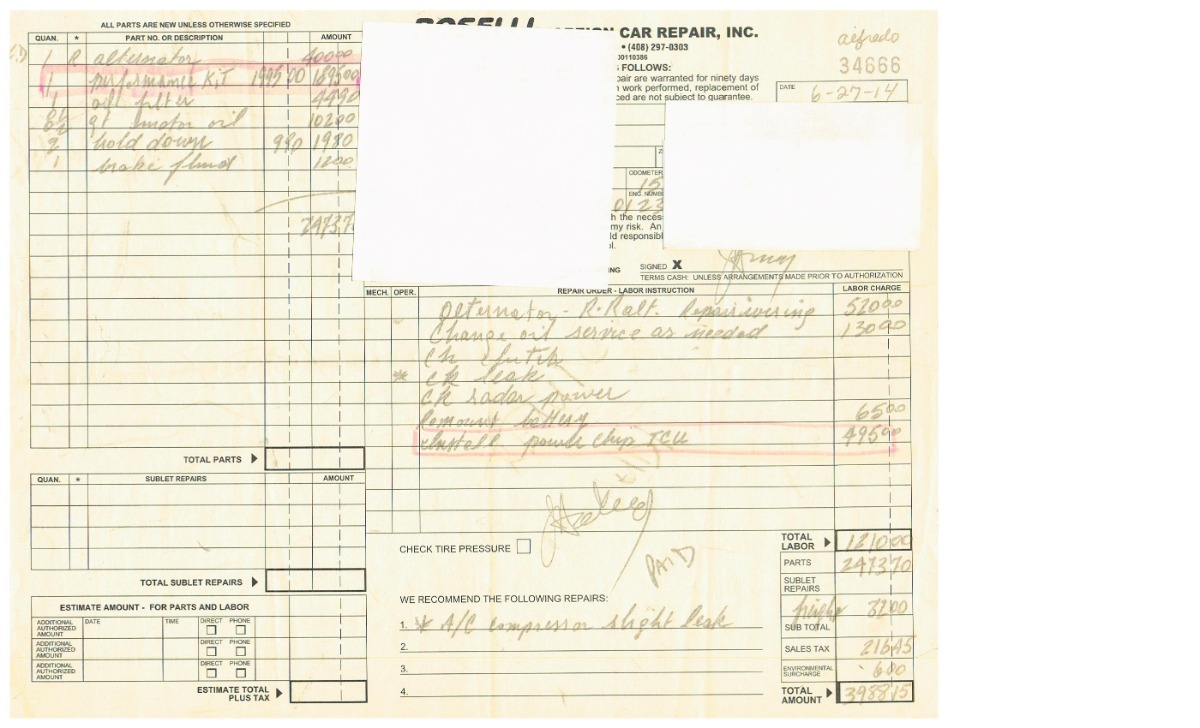 ALL PARTS ARE NEW UNLESS OTHERWISE SPECIFIED
QUAN. * PART NO. OR DESCRIPTION AMOUNT
1 R alternator 400 00
1 Performance KiT 1995 00 1895 00
1 oil filter 44 90
qt motor oil 102 00
2 hold down 9 90 19 80
1 brake fluid 12 00
2473 7
TOTAL PARTS
QUAN. * SUBLET REPAIRS AMOUNT
TOTAL SUBLET REPAIRS
ESTIMATE AMOUNT - FOR PARTS AND LABOR
ADDITIONAL AUTHORIZED AMOUNT DATE TIME DIRECT PHONE
ADDITIONAL AUTHORIZED AMOUNT DIRECT PHONE
ADDITIONAL AUTHORIZED AMOUNT DIRECT PHONE
ESTIMATE TOTAL PLUS TAX
CAR REPAIR, INC.
• (408) 297-0303
00110386
FOLLOWS:
air are warranted for ninety days
work performed, replacement of
ced are not subject to guarantee.
alfredo
34666
DATE 6-27-14
ODOMETER
15
ENG. NUMB
0123
h the neces
my risk. An
ld responsibl
ol.
SIGNED X
TERMS CASH: UNLESS ARRANGEMENTS MADE PRIOR TO AUTHORIZATION
MECH. OPER. REPAIR ORDER - LABOR INSTRUCTION LABOR CHARGE
alternator - R.Ralt. Repair wiring 520 00
Change oil service as needed 130 00
ck clutch
** ck leak
ck radar power
Remount battery 65 00
Install power chip ECU 495 00
CHECK TIRE PRESSURE
PAID
WE RECOMMEND THE FOLLOWING REPAIRS:
1. * A/C compressor slight leak
2.
3.
4.
TOTAL LABOR 1210 00
PARTS 2473 70
SUBLET REPAIRS
freight 32 00
SUB TOTAL
SALES TAX 216 45
ENVIRONMENTAL SURCHARGE 6 00
TOTAL AMOUNT 3988 15